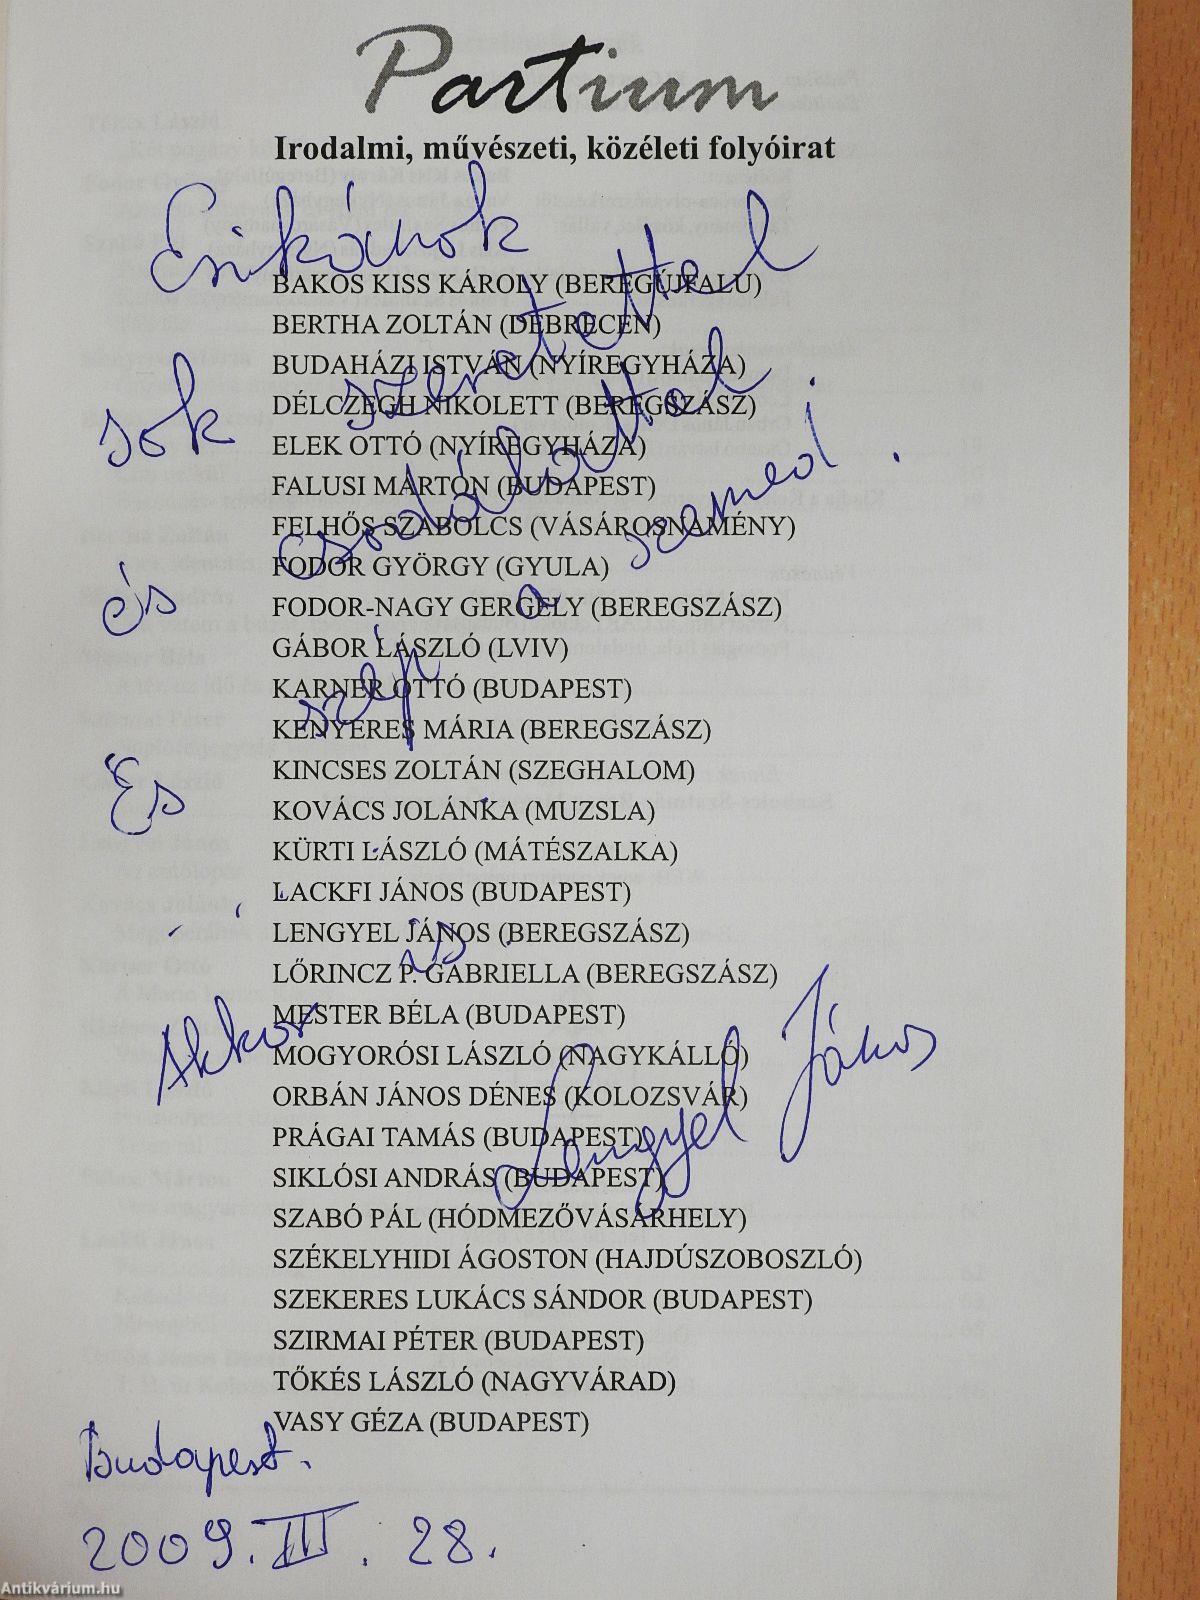 Partium
Irodalmi, művészeti, közéleti folyóirat
Csikónok
sok szeretettel
és csodálattal
szép a szemed.
És
is.
Akkor
Lengyel János
BAKOS KISS KÁROLY (BEREGÚJFALU)
BERTHA ZOLTÁN (DEBRECEN)
BUDAHÁZI ISTVÁN (NYÍREGYHÁZA)
DÉLCZEGH NIKOLETT (BEREGSZÁSZ)
ELEK OTTÓ (NYÍREGYHÁZA)
FALUSI MÁRTON (BUDAPEST)
FELHŐS SZABOLCS (VÁSÁROSNAMÉNY)
FODOR GYÖRGY (GYULA)
FODOR-NAGY GERGELY (BEREGSZÁSZ)
GÁBOR LÁSZLÓ (LVIV)
KARNER OTTÓ (BUDAPEST)
KENYERES MÁRIA (BEREGSZÁSZ)
KINCSES ZOLTÁN (SZEGHALOM)
KOVÁCS JOLÁNKA (MUZSLA)
KÜRTI LÁSZLÓ (MÁTÉSZALKA)
LACKFI JÁNOS (BUDAPEST)
LENGYEL JÁNOS (BEREGSZÁSZ)
LŐRINCZ P. GABRIELLA (BEREGSZÁSZ)
MESTER BÉLA (BUDAPEST)
MOGYORÓSI LÁSZLÓ (NAGYKÁLLÓ)
ORBÁN JÁNOS DÉNES (KOLOZSVÁR)
PRÁGAI TAMÁS (BUDAPEST)
SIKLÓSI ANDRÁS (BUDAPEST)
SZABÓ PÁL (HÓDMEZŐVÁSÁRHELY)
SZÉKELYHIDI ÁGOSTON (HAJDÚSZOBOSZLÓ)
SZEKERES LUKÁCS SÁNDOR (BUDAPEST)
SZIRMAI PÉTER (BUDAPEST)
TŐKÉS LÁSZLÓ (NAGYVÁRAD)
VASY GÉZA (BUDAPEST)
Budapest.
2009. III. 28.
Antikvárium.hu